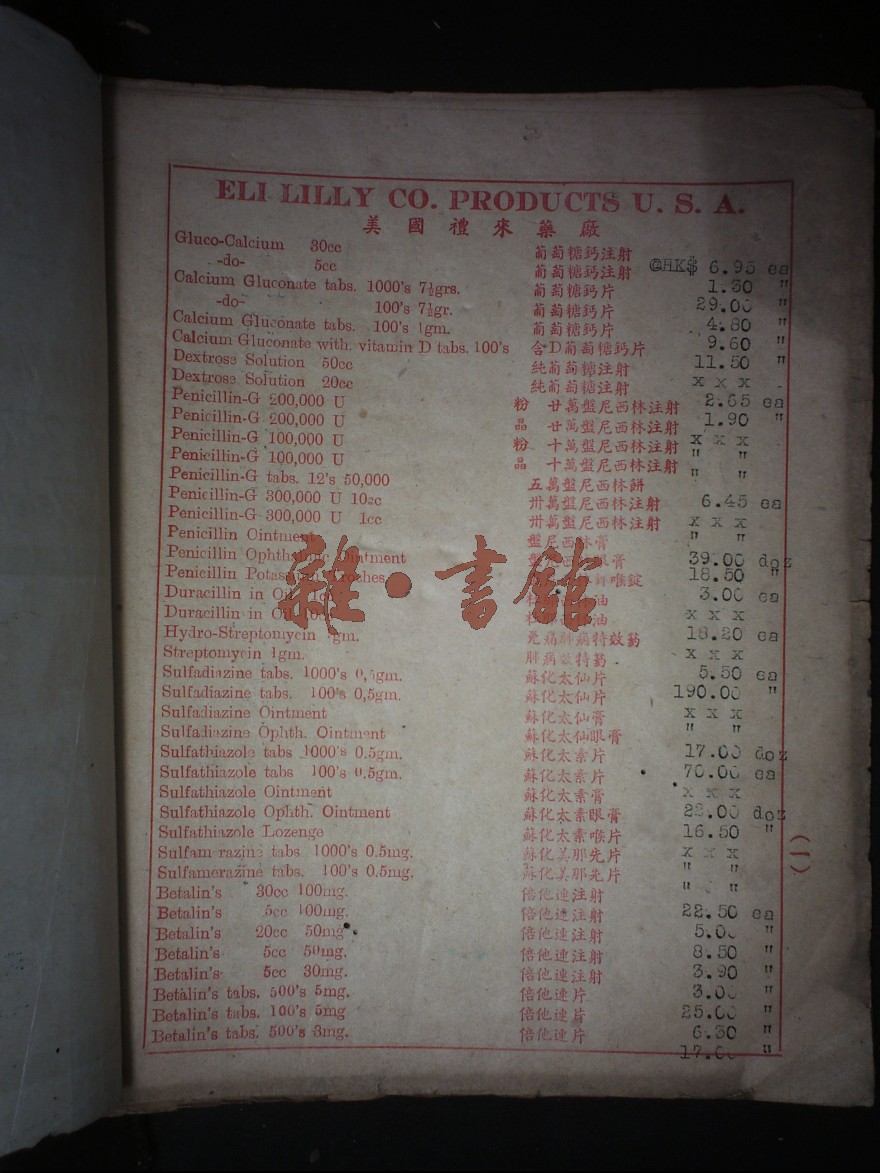 ELI LILLY CO. PRODUCTS U. S. A.
美國禮來藥廠
Gluco-Calcium 30cc 葡萄糖鈣注射 @HK$ 6.95 ea
-do- 5cc 葡萄糖鈣注射 1.30 "
Calcium Gluconate tabs. 1000's 7½grs. 葡萄糖鈣片 29.00 "
-do- 100's 7½gr. 葡萄糖鈣片 4.80 "
Calcium Gluconate tabs. 100's 1gm. 葡萄糖鈣片 9.60 "
Calcium Gluconate with. vitamin D tabs. 100's 含D葡萄糖鈣片 11.50 "
Dextrose Solution 50cc 純葡萄糖注射 x x x
Dextrose Solution 20cc 純葡萄糖注射 2.65 ea
Penicillin-G 200,000 U 粉 廿萬盤尼西林注射 1.90 "
Penicillin-G 200,000 U 晶 廿萬盤尼西林注射 x x x
Penicillin-G 100,000 U 粉 十萬盤尼西林注射 " "
Penicillin-G 100,000 U 晶 十萬盤尼西林注射 " "
Penicillin-G tabs. 12's 50,000 五萬盤尼西林餅 6.45 ea
Penicillin-G 300,000 U 10cc 卅萬盤尼西林注射 x x x
Penicillin-G 300,000 U 1cc 卅萬盤尼西林注射 " "
Penicillin Ointment 盤尼西林膏 39.00 doz
Penicillin Ophthalmic Ointment 眼膏 18.50 "
Penicillin Potassium Troches 喉錠 3.00 ea
Duracillin in Oil 油 x x x
Duracillin in Oil 油 18.20 ea
Hydro-Streptomycin 1gm. 肺病特效葯 x x x
Streptomycin 1gm. 肺病效特葯 5.50 ea
Sulfadiazine tabs. 1000's 0,5gm. 蘇化太仙片 190.00 "
Sulfadiazine tabs. 100's 0,5gm. 蘇化太仙片 x x x
Sulfadiazine Ointment 蘇化太仙膏 " "
Sulfadiazine Ophth. Ointment 蘇化太仙眼膏 17.00 doz
Sulfathiazole tabs 1000's 0.5gm. 蘇化太素片 70.00 ea
Sulfathiazole tabs 100's 0.5gm. 蘇化太素片 x x x
Sulfathiazole Ointment 蘇化太素膏 22.00 doz
Sulfathiazole Ophth. Ointment 蘇化太素眼膏 16.50 "
Sulfathiazole Lozenge 蘇化太素喉片 x x x
Sulfamerazine tabs 1000's 0.5mg. 蘇化美那先片 " "
Sulfamerazine tabs. 100's 0.5mg. 蘇化美那先片 " "
Betalin's 30cc 100mg. 倍他連注射 22.50 ea
Betalin's 5cc 100mg. 倍他連注射 5.00 "
Betalin's 20cc 50mg 倍他連注射 8.50 "
Betalin's 5cc 50mg. 倍他連注射 3.90 "
Betalin's 5cc 30mg. 倍他連注射 3.00 "
Betalin's tabs. 500's 5mg. 倍他連片 25.00 "
Betalin's tabs. 100's 5mg 倍他連片 6.30 "
Betalin's tabs. 500's 3mg. 倍他連片 17.00 "
(一)
雜·書館